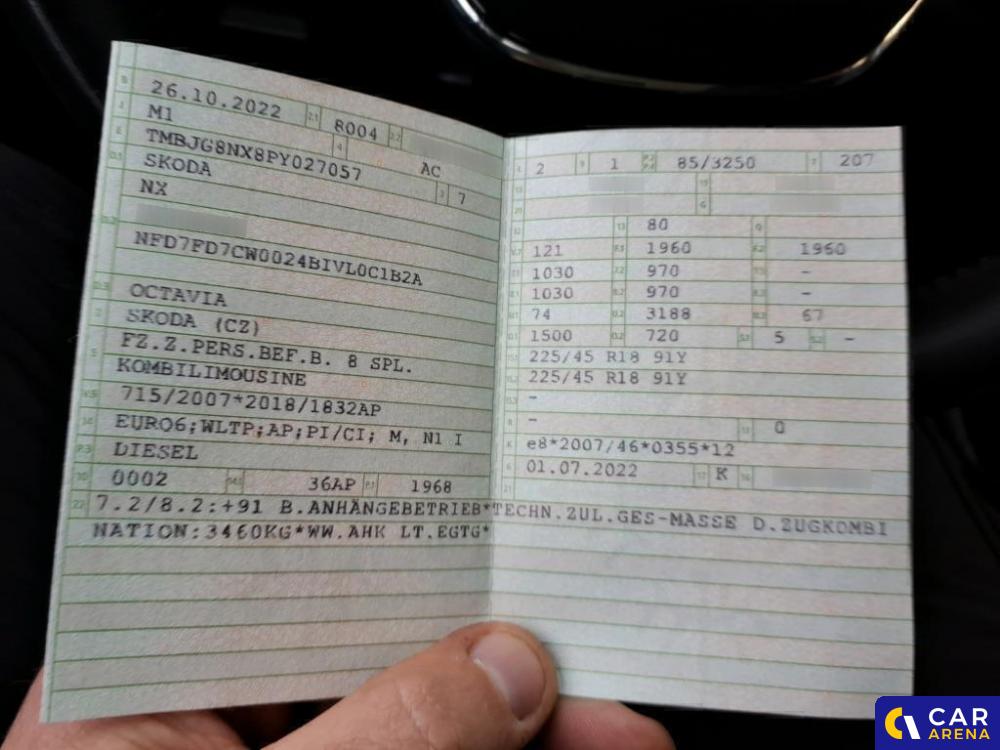 26.10.2022 2.1 8004 2.2
M1 AC
TMBJG8NX8PY027057 7
SKODA
NX
NFD7FD7CW0024BIVL0C1B2A
OCTAVIA
SKODA (CZ)
FZ.Z.PERS.BEF.B. 8 SPL.
KOMBILIMOUSINE
715/2007*2018/1832AP
EURO6;WLTP;AP;PI/CI; M, N1 I
DIESEL
0002 36AP 1968
2 1 85/3250 207
80
121 1960 1960
1030 970 -
1030 970 -
74 3188 67
1500 720 5 -
225/45 R18 91Y
225/45 R18 91Y
-
- 0
e8*2007/46*0355*12
01.07.2022 K
22 7.2/8.2:+91 B.ANHÄNGEBETRIEB*TECHN.ZUL.GES-MASSE D.ZUGKOMBI
NATION:3460KG*WW.AHK LT.EGTG*
CAR
ARENA